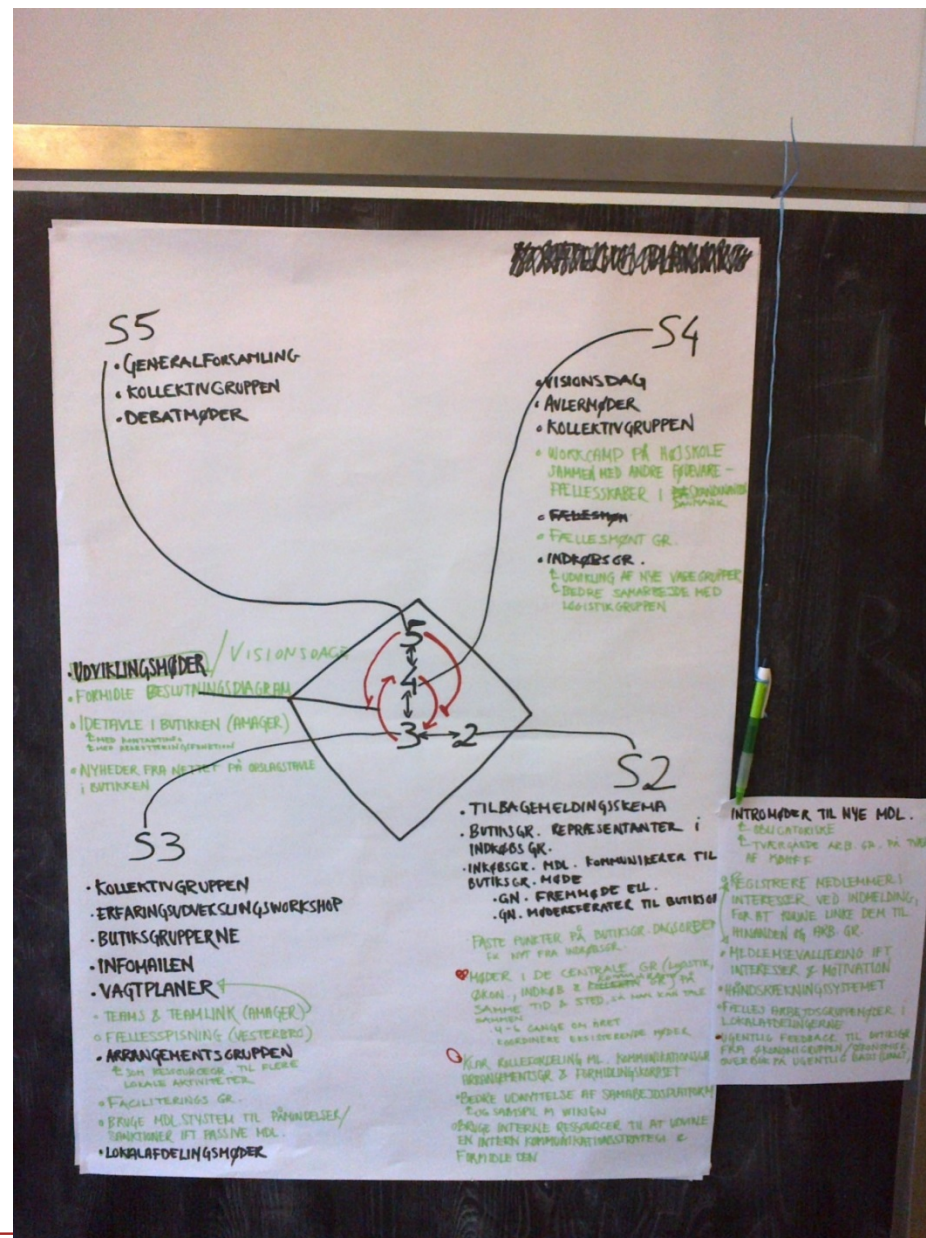 S5
• GENERALFORSAMLING
• KOLLEKTIVGRUPPEN
• DEBATMØDER
S4
• VISIONSDAG
• AVLERMØDER
• KOLLEKTIVGRUPPEN
• WORKCAMP PÅ HØJSKOLE
SAMMEN MED ANDRE FØDEVARE-
FÆLLESSKABER I
DANMARK
• FÆLLESMØNT GR.
• INDKØBSGR.
UDVIKLING AF NYE VAREGRUPPER
BEDRE SAMARBEJDE MED
LOGISTIKGRUPPEN
5
4
3 2
• UDVIKLINGSMØDER / VISIONSDAGE
• FORMIDLE BESLUTNINGSDIAGRAM
• IDETAVLE I BUTIKKEN (AMAGER)
• NYHEDER FRA NETTET PÅ OPSLAGSTAVLE
I BUTIKKEN
S3
• KOLLEKTIVGRUPPEN
• ERFARINGSUDVEKSLINGSWORKSHOP
• BUTIKSGRUPPERNE
• INFOMAILEN
• VAGTPLANER
• TEAMS & TEAMLINK (AMAGER)
• FÆLLESSPISNING (VESTERBRO)
• ARRANGEMENTSGRUPPEN
SOM RESSOURCEGR. TIL FLERE
LOKALE AKTIVITETER
• FACILITERINGS GR.
• BRUGE MDL. SYSTEM TIL PÅMINDELSER/
SANKTIONER IFT PASSIVE MDL.
• LOKALAFDELINGSMØDER
S2
• TILBAGEMELDINGSSKEMA
• BUTIKSGR. REPRÆSENTANTER I
INDKØBSGR.
• INKØBSGR. MDL. KOMMUNIKERER TIL
BUTIKSGR. MØDE
• GN. FREMMØDE ELL.
• GN. MØDEREFERATER TIL
FASTE PUNKTER PÅ BUTIKSGR. DAGSORDEN
FX NYT FRA INDKØBSGR.
MØDER I DE CENTRALE GR (LOGISTIK,
ØKON., INDKØB & GR.) PÅ
SAMME TID & STED, SÅ MAN KAN TALE
SAMMEN
• 4-6 GANGE OM ÅRET
KOORDINERE EKSISTERENDE MØDER
KLAR ROLLEFORDELING ML. KOMMUNIKATIONSGR
ARRANGEMENTSGR & FORMIDLINGSKORPSET
• BEDRE UDNYTTELSE AF SAMARBEJDSPLATFORM
OG SAMSPIL M WIKIEN
• BRUGE INTERNE RESSOURCER TIL AT UDVIKLE
EN INTERN KOMMUNIKATIONSSTRATEGI &
FORMIDLE DEN
INTROMØDER TIL NYE MDL.
OBLIGATORISKE
TVÆRGÅENDE ARB. GR. PÅ
AF
• REGISTRERE MEDLEMMERS
INTERESSER VED INDMELDING,
FOR AT KUNNE LINKE DEM TIL
HINANDEN OG ARB. GR.
• MEDLEMSEVALUERING IFT
INTERESSER & MOTIVATION
• HÅNDSRÆKNINGSSYSTEMET
• FÆLLES ARBEJDSGRUPPEMØDER I
LOKALAFDELINGERNE
• UGENTLIG FEEDBACK TIL BUTIKSGR
FRA ØKONOMIGRUPPEN /
OVERBLIK PÅ UGENTLIG BASIS